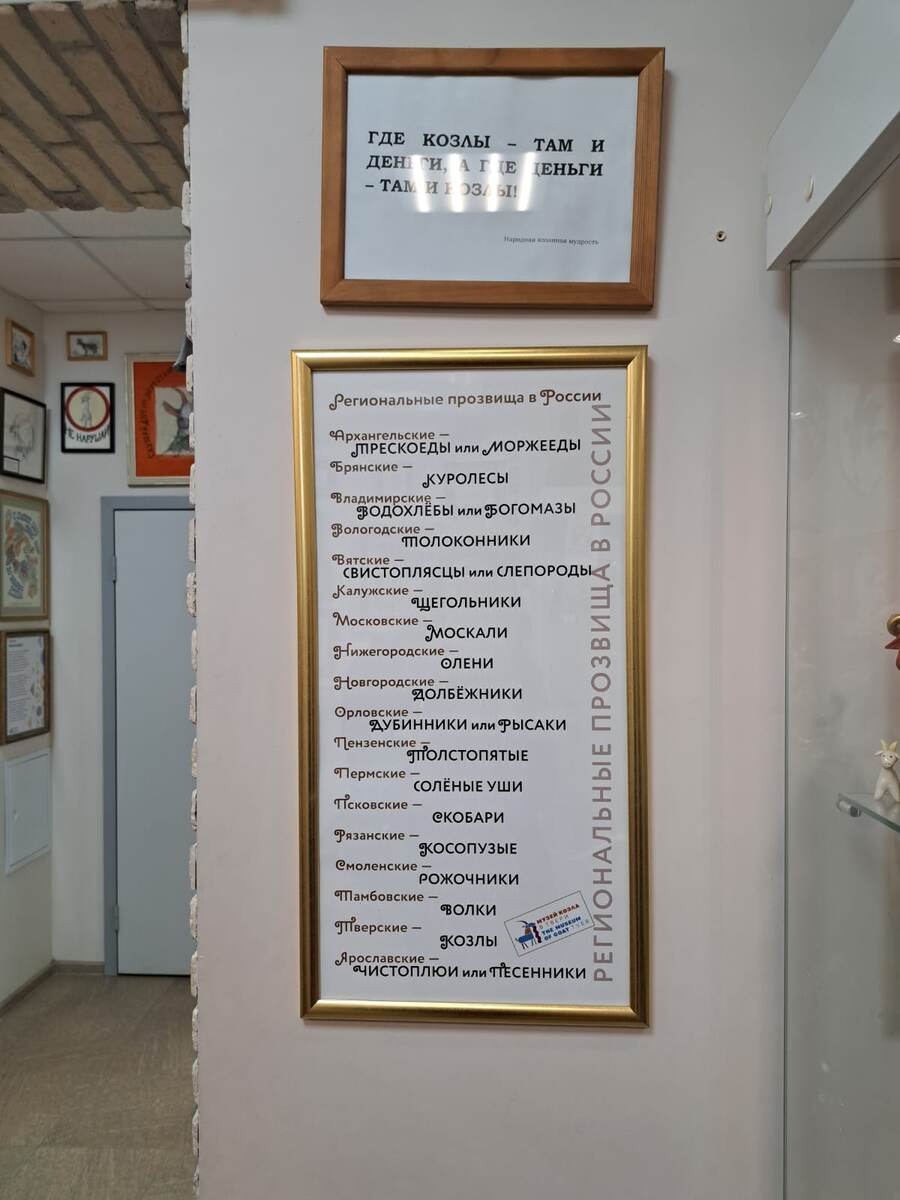 ГДЕ КОЗЛЫ – ТАМ И
ДЕНЬГИ, А ГДЕ ДЕНЬГИ
– ТАМ И КОЗЛЫ!
Народная козлиная мудрость
Региональные прозвища в России
Архангельские —
ТРЕСКОЕДЫ или МОРЖЕЕДЫ
Брянские —
КУРОЛЕСЫ
Владимирские —
ВОДОХЛЁБЫ или БОГОМАЗЫ
Вологодские —
ТОЛОКОННИКИ
Вятские —
СВИСТОПЛЯСЦЫ или СЛЕПОРОДЫ
Калужские —
ЩЕГОЛЬНИКИ
Московские —
МОСКАЛИ
Нижегородские —
ОЛЕНИ
Новгородские —
ДОЛБЁЖНИКИ
Орловские —
ДУБИННИКИ или РЫСАКИ
Пензенские —
ТОЛСТОПЯТЫЕ
Пермские —
СОЛЁНЫЕ УШИ
Псковские —
СКОБАРИ
Рязанские —
КОСОПУЗЫЕ
Смоленские —
РОЖОЧНИКИ
Тамбовские —
ВОЛКИ
Тверские —
КОЗЛЫ
Ярославские —
ЧИСТОПЛЮИ или ПЕСЕННИКИ
РЕГИОНАЛЬНЫЕ ПРОЗВИЩА В РОССИИ
МУЗЕЙ КОЗЛА
В ТВЕРИ
THE MUSEUM
OF GOAT TVER
НЕ НАРУШАЙ